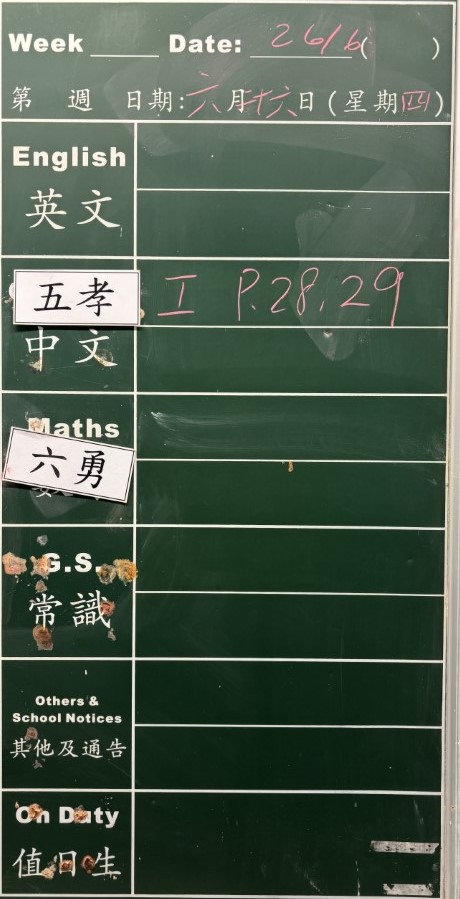 Week ____ Date: 26/6( )
第 週 日期:六月廿六日(星期四)
English
英文
五孝 I P.28,29
中文
Maths
六勇
G.S.
常識
Others &
School Notices
其他及通告
On Duty
值日生